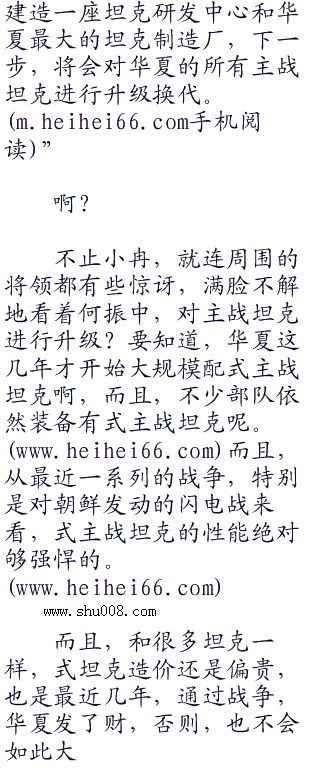 建造一座坦克研发中心和华
夏最大的坦克制造厂，下一
步，将会对华夏的所有主战
坦克进行升级换代。
(m.heihei66.com手机阅
读)”
啊？
不止小冉，就连周围的
将领都有些惊讶，满脸不解
地看着何振中，对主战坦克
进行升级？要知道，华夏这
几年才开始大规模配式主战
坦克啊，而且，不少部队依
然装备有式主战坦克呢。
(www.heihei66.com)而且，
从最近一系列的战争，特别
是对朝鲜发动的闪电战来
看，式主战坦克的性能绝对
够强悍的。
(www.heihei66.com)
www.shu008.com
而且，和很多坦克一
样，式坦克造价还是偏贵，
也是最近几年，通过战争，
华夏发了财，否则，也不会
如此大